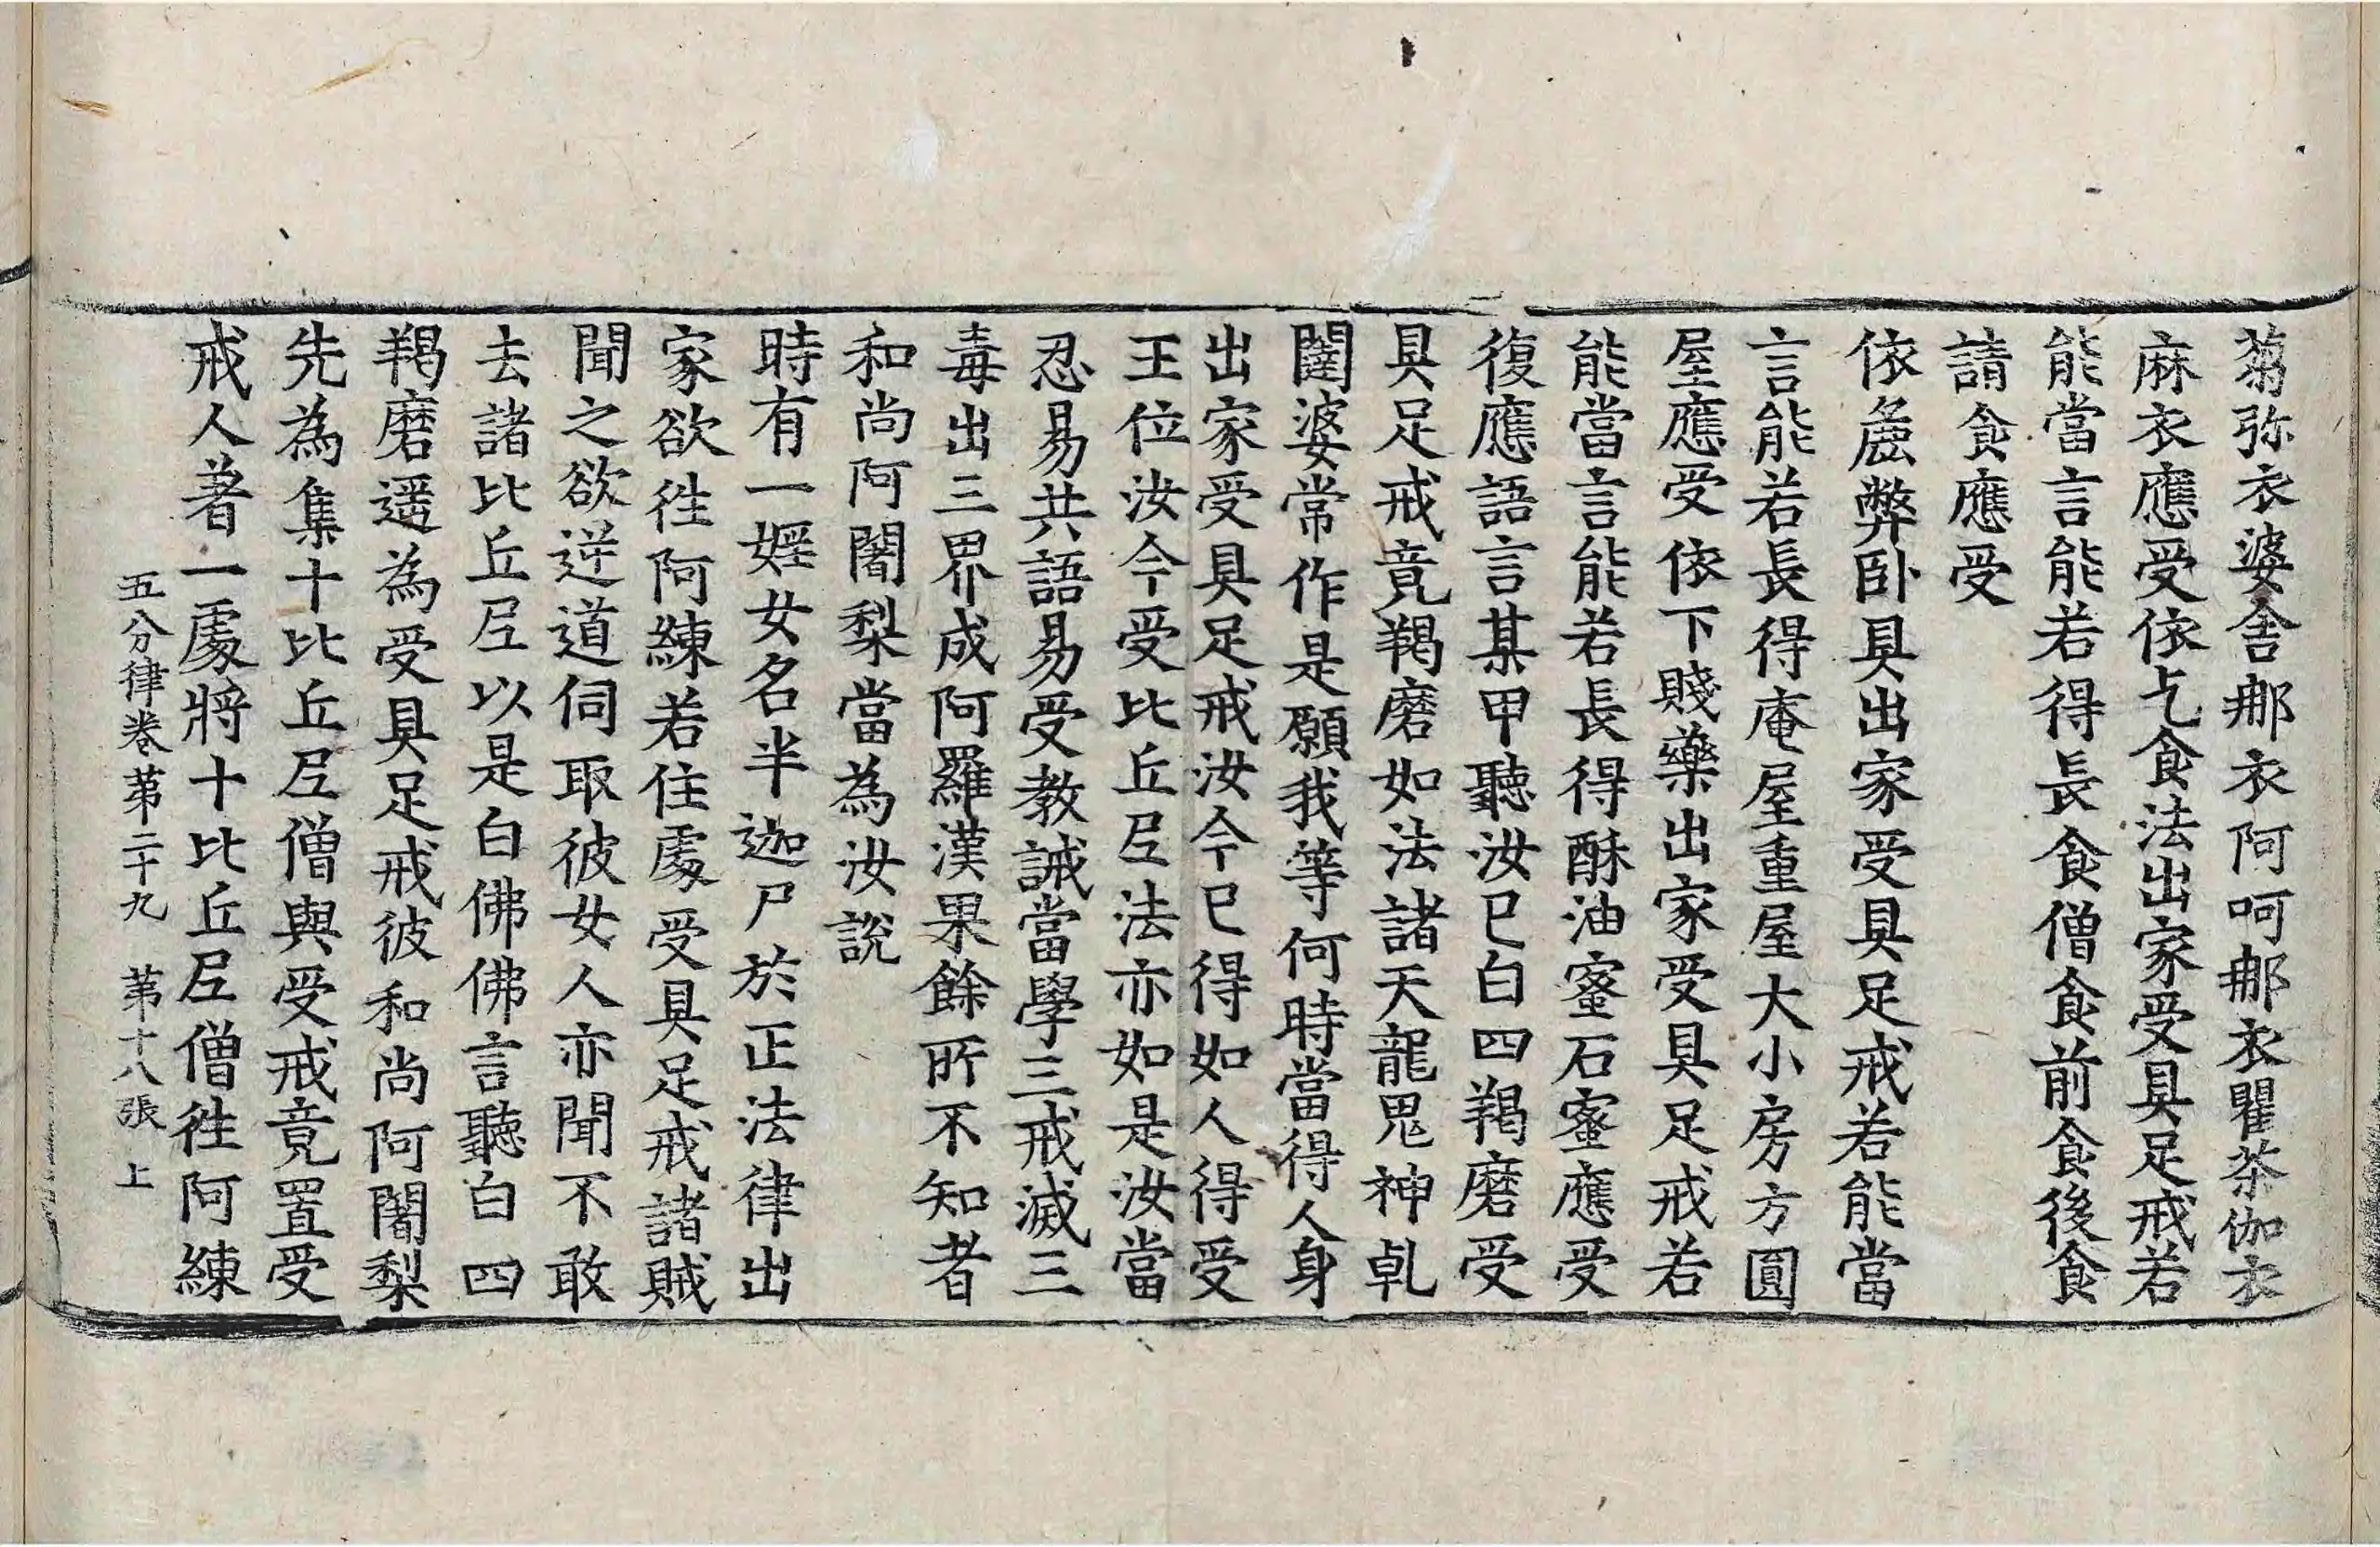 蒭弥衣婆舍𨚗衣阿呵𨚗衣瞿茶伽衣
麻衣應受依乞食法出家受具足戒若
能當言能若得長食僧食前食後食
請食應受
依麁弊卧具出家受具足戒若能當
言能若長得庵屋重屋大小房方圓
屋應受依下賤藥出家受具足戒若
能當言能若長得酥油蜜石蜜應受
復應語言某甲聽汝已白四羯磨受
具足戒竟羯磨如法諸天龍鬼神乹
闥婆常作是願我等何時當得人身
出家受具足戒汝今已得如人得受
王位汝今受比丘𡰱法亦如是汝當
忍易共語易受教誡當學三戒滅三
毒出三界成阿羅漢果餘所不知者
和尚阿闍梨當為汝說
時有一婬女名半迦尸於正法律出
家欲徃阿練若住處受具足戒諸賊
聞之欲逆道伺取彼女人亦聞不敢
去諸比丘𡰱以是白佛佛言聽白四
羯磨遥為受具足戒彼和尚阿闍梨
先為集十比丘𡰱僧與受戒竟置受
戒人著一處將十比丘𡰱僧徃阿練
五分律卷苐二十九 苐十八張 上